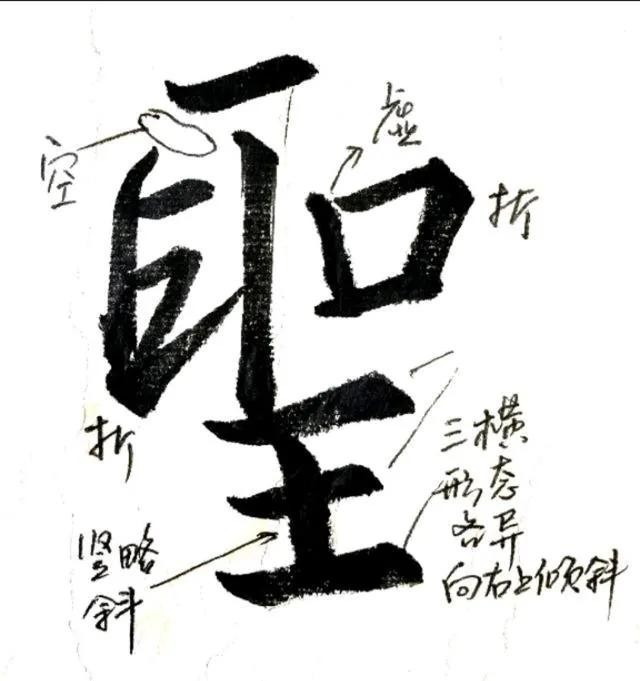 聖
空
虚
折
折
三横
形态
各异
向右上倾斜
竖略
斜